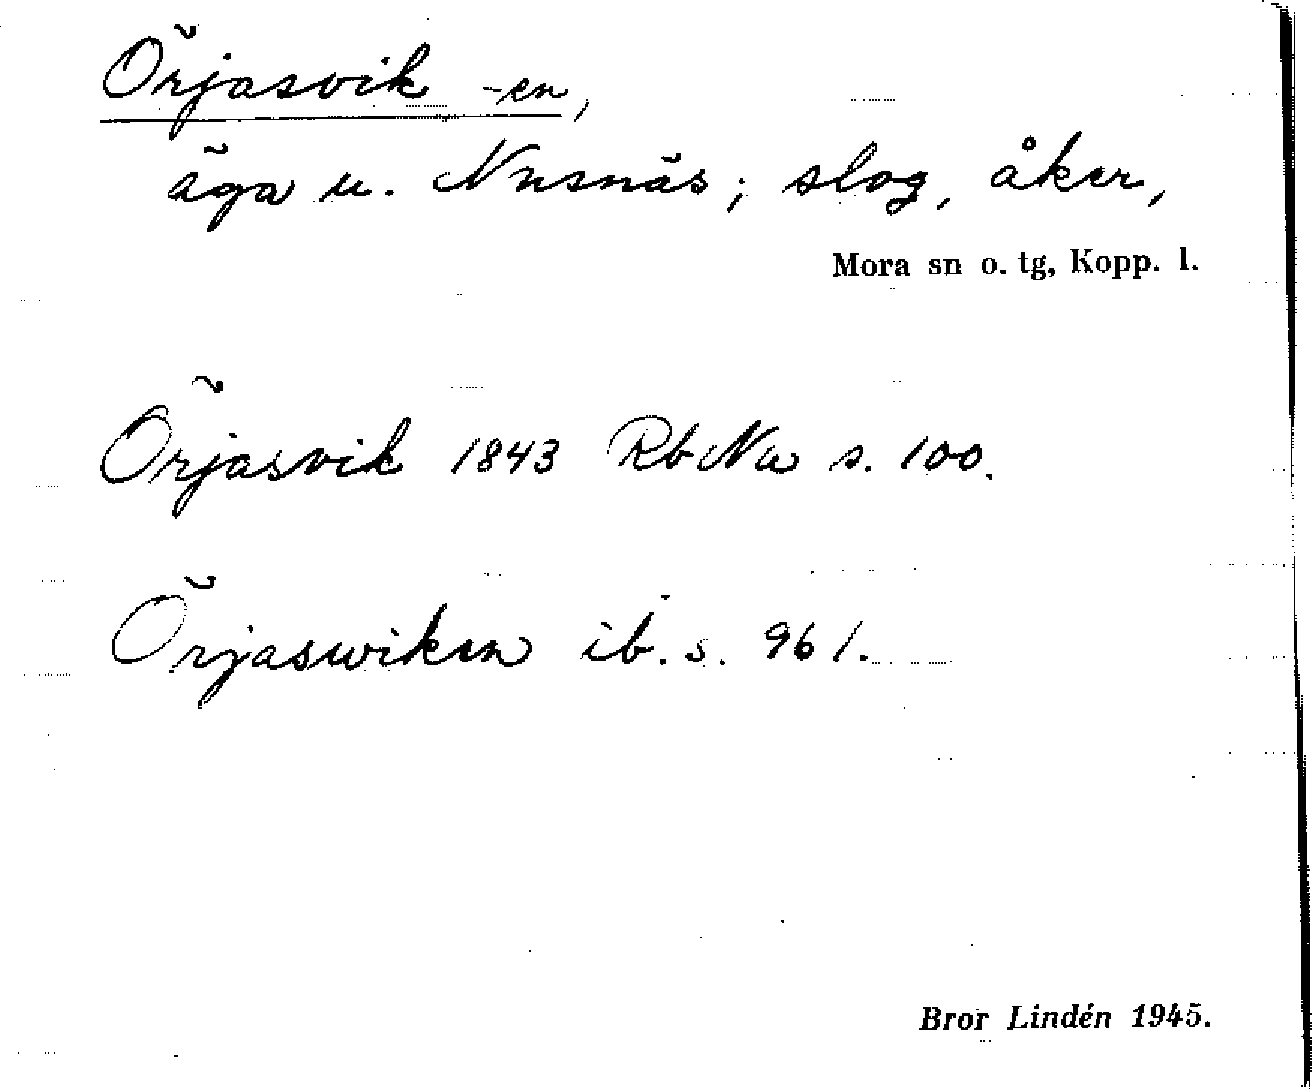 Örjasvik -en,
äga u. Nusnäs; slog, åker,
Mora sn o. tg, Kopp. l.
Örjasvik 1843 RbNa s. 100.
Örjaswiken ib. s. 961.
Bror Lindén 1945.